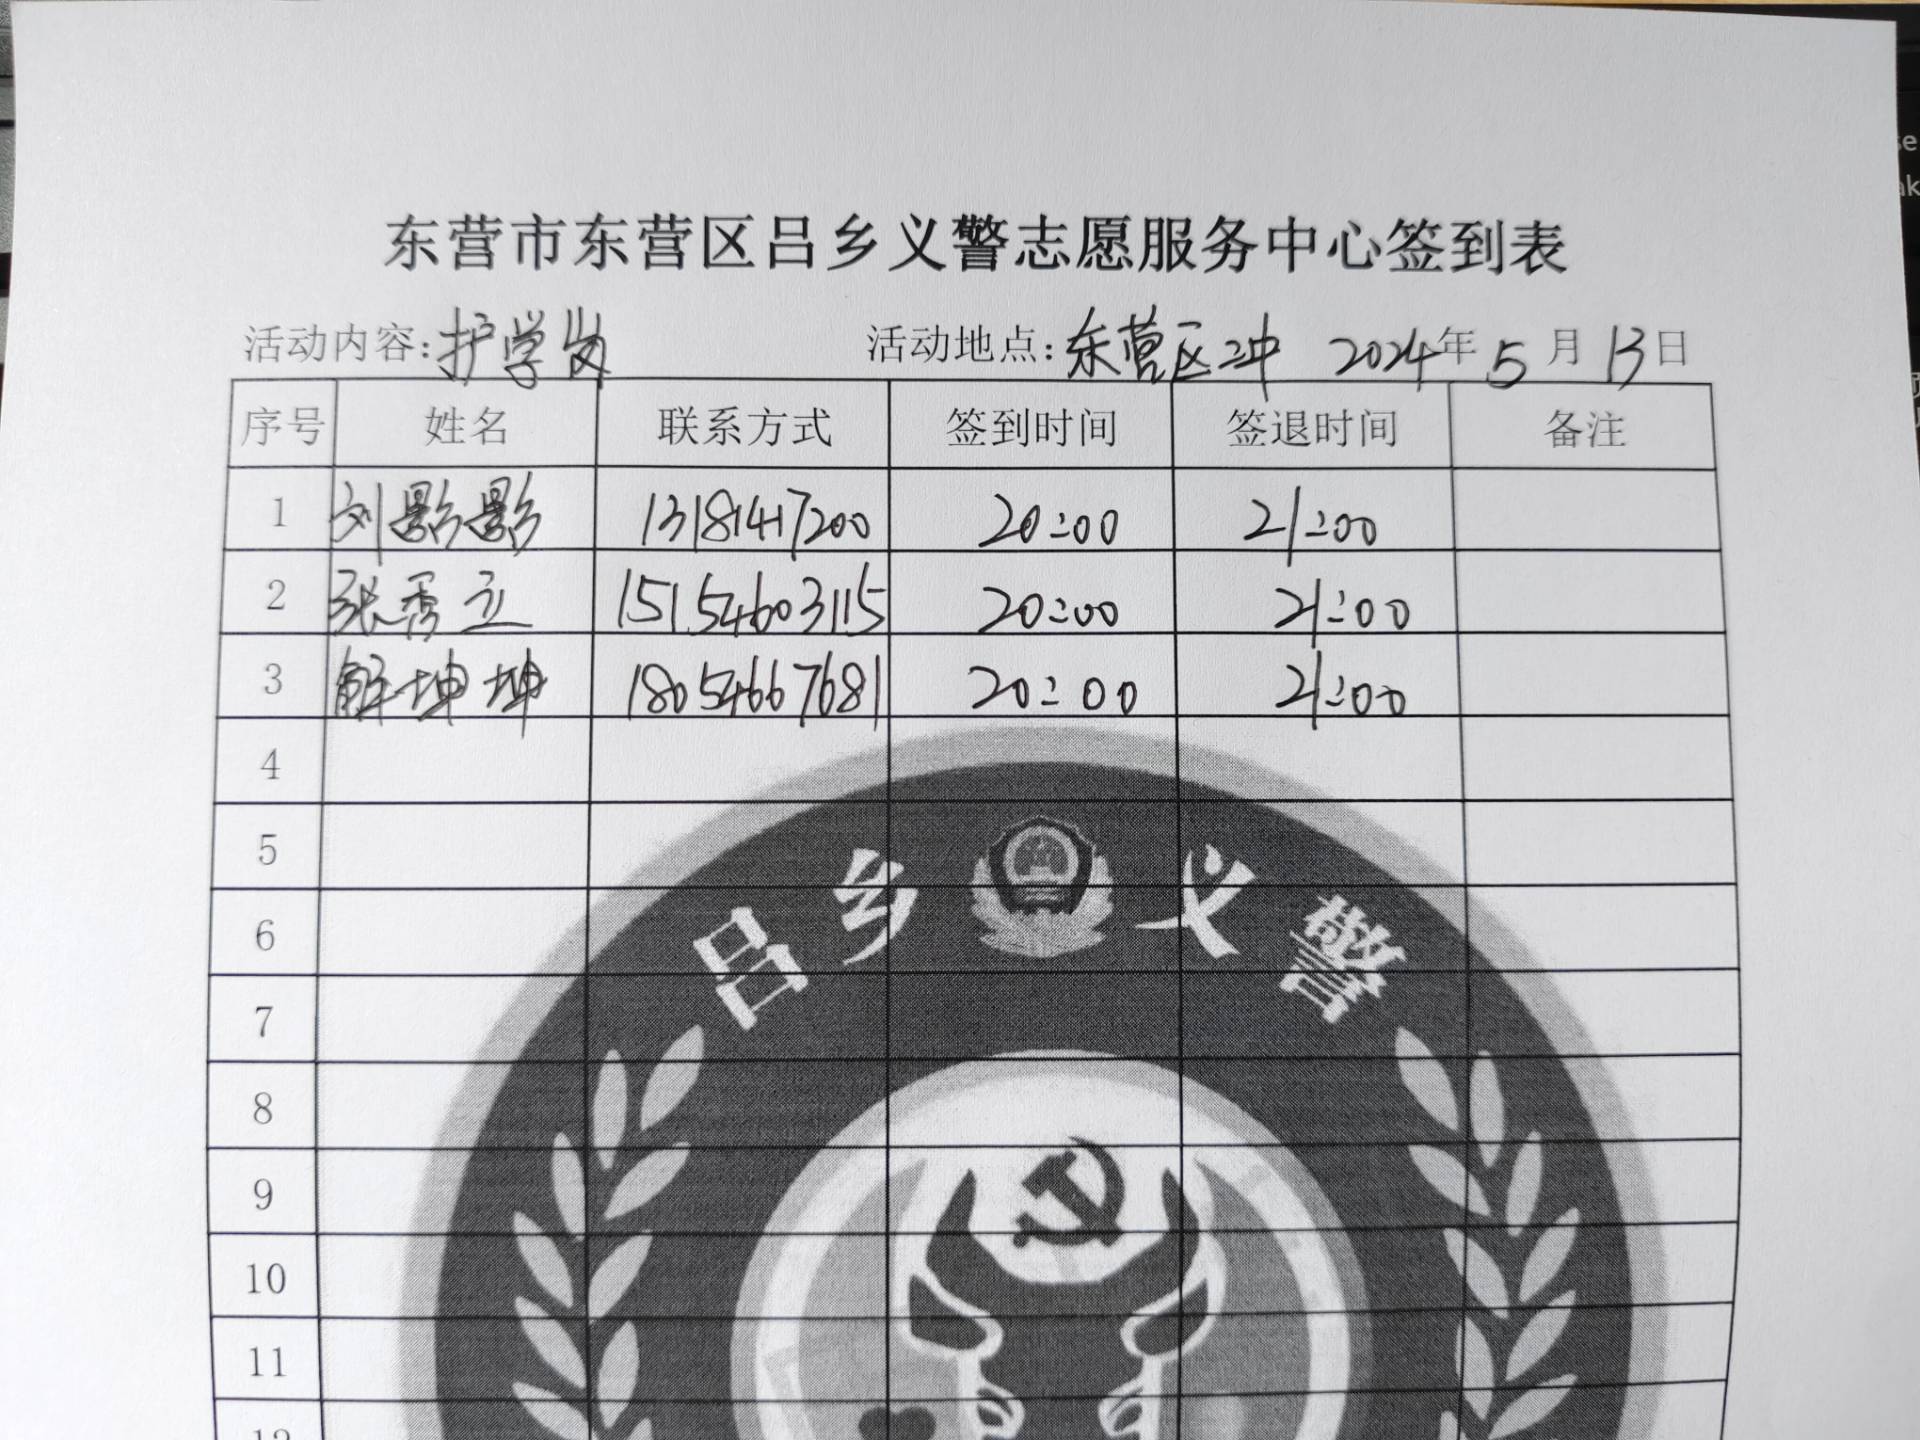 东营市东营区吕乡义警志愿服务中心签到表
活动内容：护学岗 活动地点：东营区二中 2024年5月13日
序号 姓名 联系方式 签到时间 签退时间 备注
1 刘影影 13181417200 20:00 21:00
2 张秀立 15154603115 20:00 21:00
3 解坤坤 18054667681 20:00 21:00
4
5
吕乡义警
6
7
8
9
10
11
12